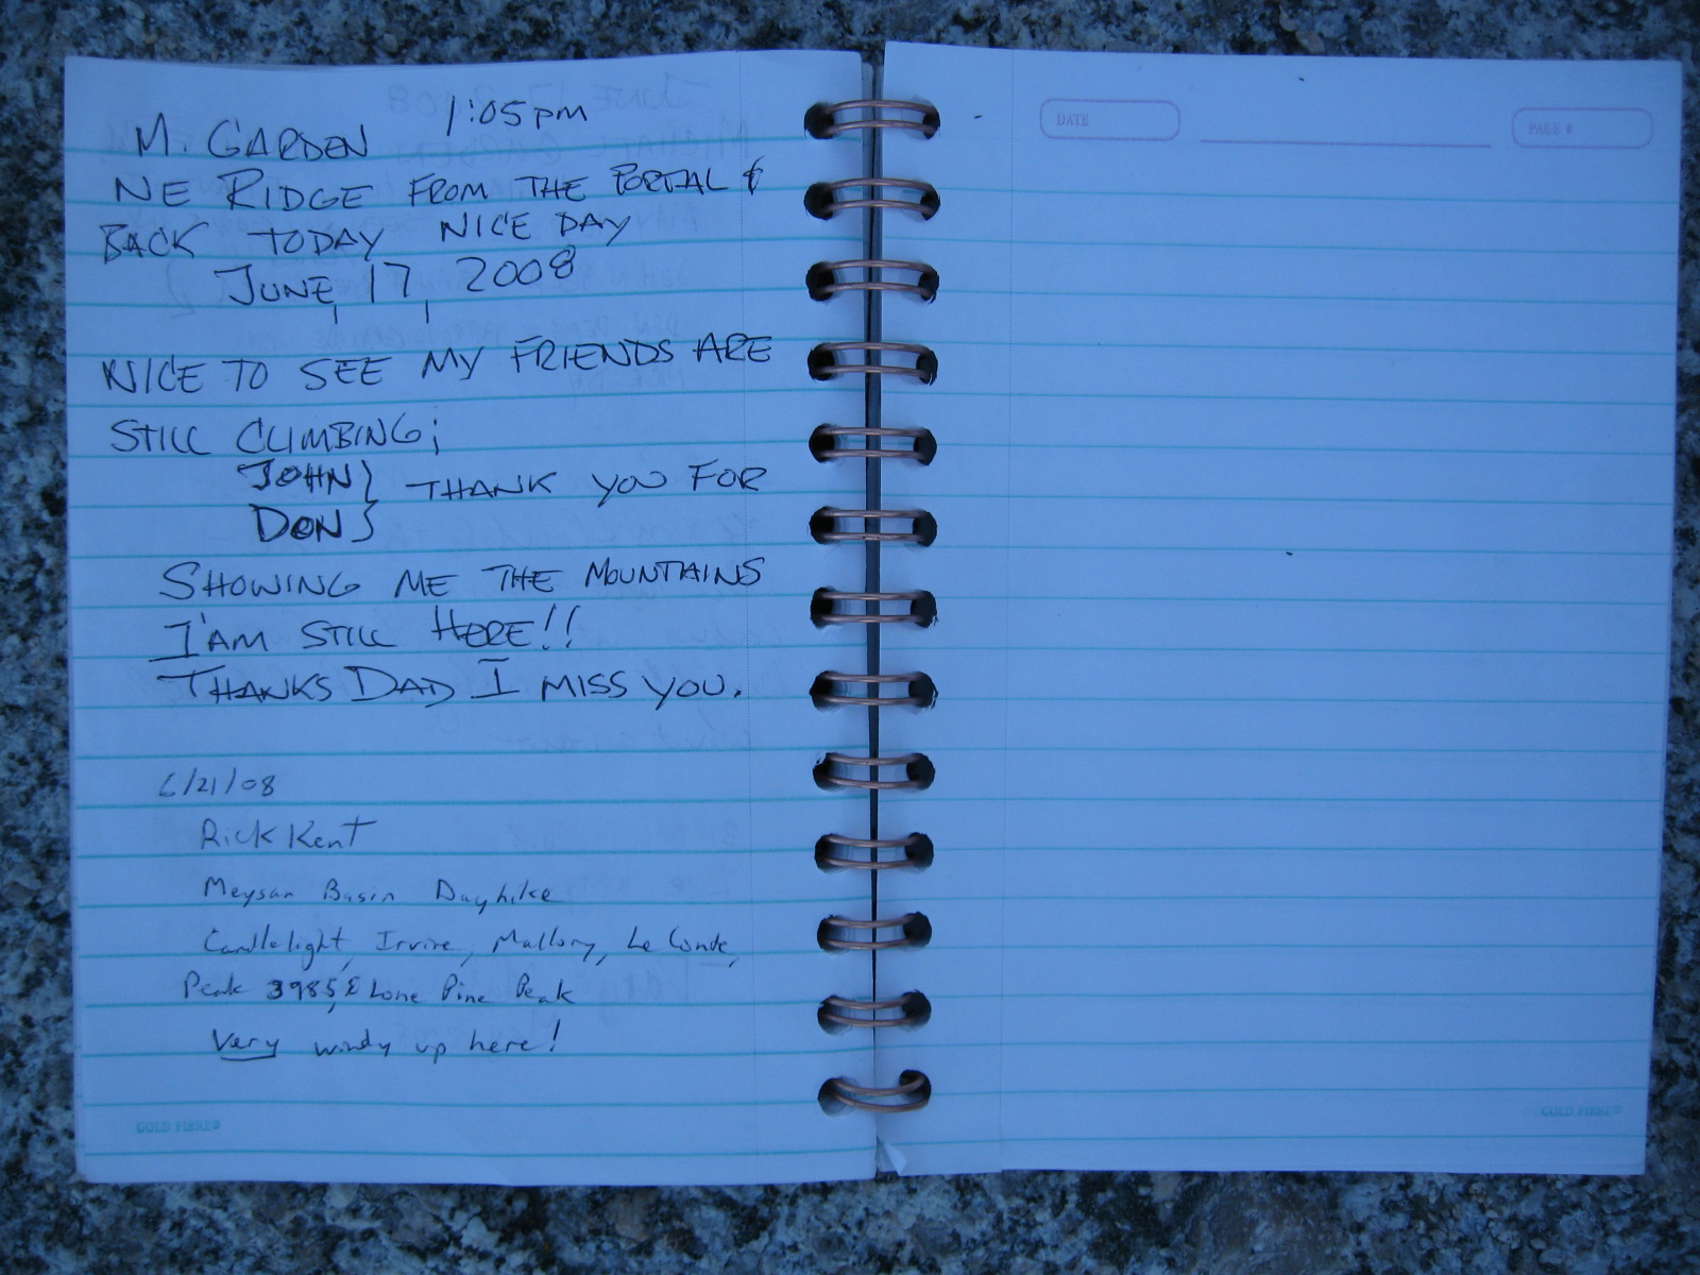 1:05 PM
M. GARDEN
NE RIDGE FROM THE PORTAL &
BACK TODAY NICE DAY
JUNE, 17, 2008
NICE TO SEE MY FRIENDS ARE
STILL CLIMBING;
JOHN } THANK YOU FOR
DON }
SHOWING ME THE MOUNTAINS
I'AM STILL HERE!!
THANKS DAD I MISS YOU.
6/21/08
Rick Kent
Meysan Basin Dayhike
Candlelight, Irvine, Mallory, Le Conte,
Peak 3985, & Lone Pine Peak
Very windy up here!
GOLD FIBRE®
DATE
PAGE #
GOLD FIBRE®